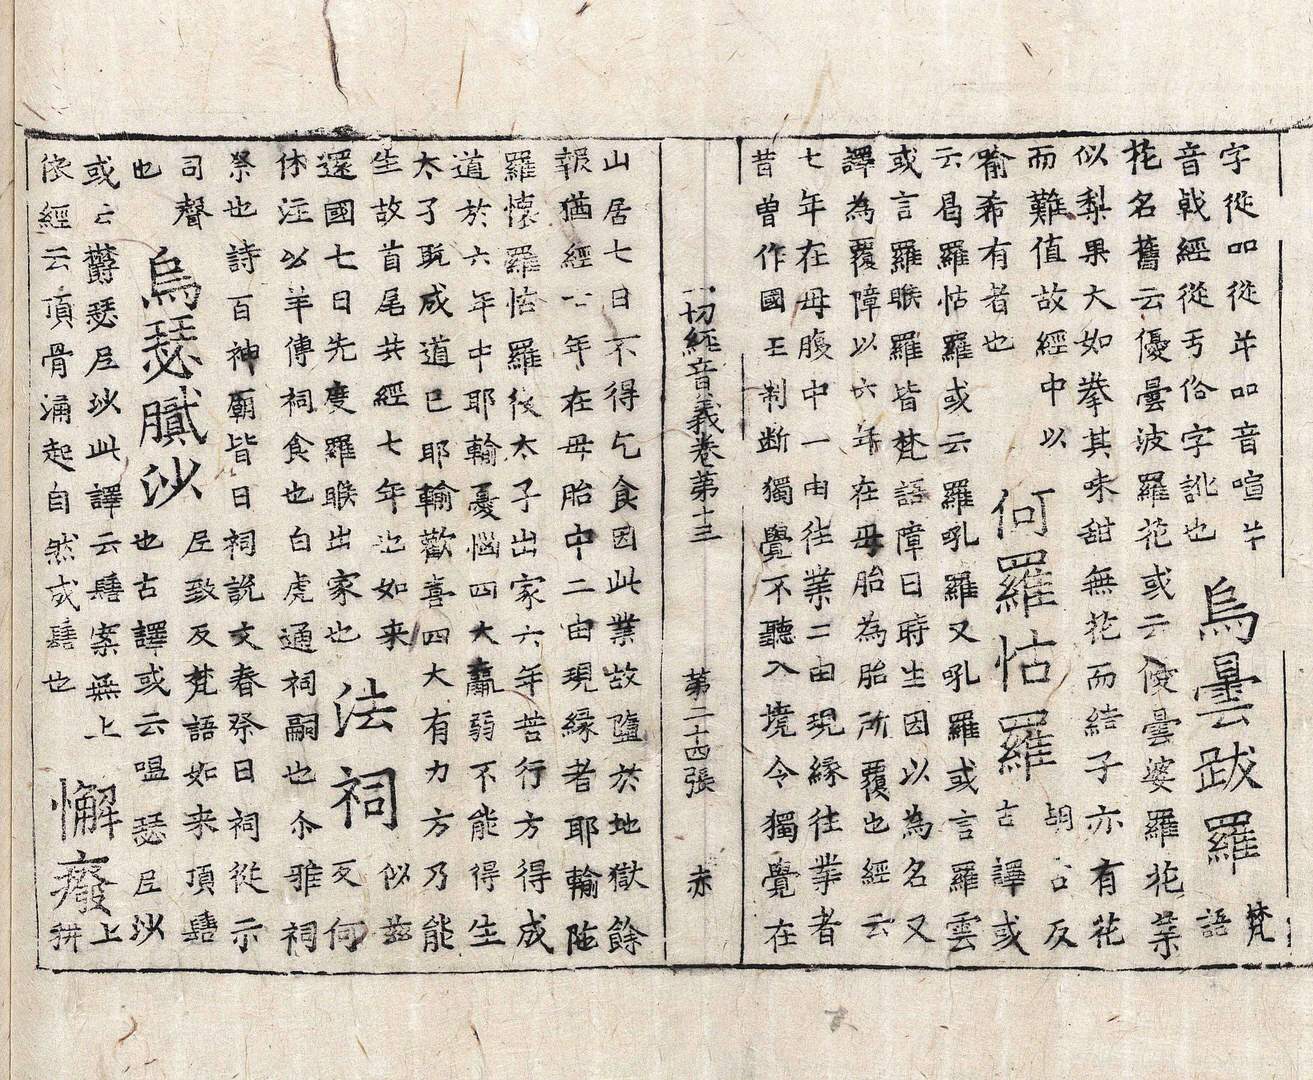 字從吅從𢆉吅音喧𢆉
音戟經從丐俗字訛也
烏曇跋羅
梵
語
花名舊云優曇波羅花或云優曇婆羅花葉
似梨果大如拳其味甜無花而結子亦有花
而難值故經中以
喻希有者也
何羅怙羅
胡古反
古譯或
云曷羅怙羅或云羅吼羅又吼羅或言羅雲
或言羅睺羅皆梵語障日時生因以為名又
譯為覆障以六年在母胎為胎所覆也經云
七年在母腹中一由往業二由現緣往業者
昔曾作國王制斷獨覺不聽入境令獨覺在
一切經音義卷第十三 第二十四張 赤
山居七日不得乞食因此業故墮於地獄餘
報猶經七年在母胎中二由現緣者耶輸陁
羅懷羅怙羅後太子出家六年苦行方得成
道於六年中耶輸憂惱四大羸弱不能得生
太子既成道已耶輸歡喜四大有力方乃能
生故首尾共經七年也如来
還國七日先度羅睺出家也
法祠
似茲
反何
休注公羊傳祠食也白虎通祠嗣也尒雅祠
祭也詩百神廟皆曰祠說文春祭曰祠從示
司聲
也
烏瑟膩沙
尼致反梵語如来頂髻
也古譯或云嗢瑟尼沙
或云欝瑟尼沙此譯云髻案無上
依經云頂骨涌起自然成髻也
懈癈
上
耕